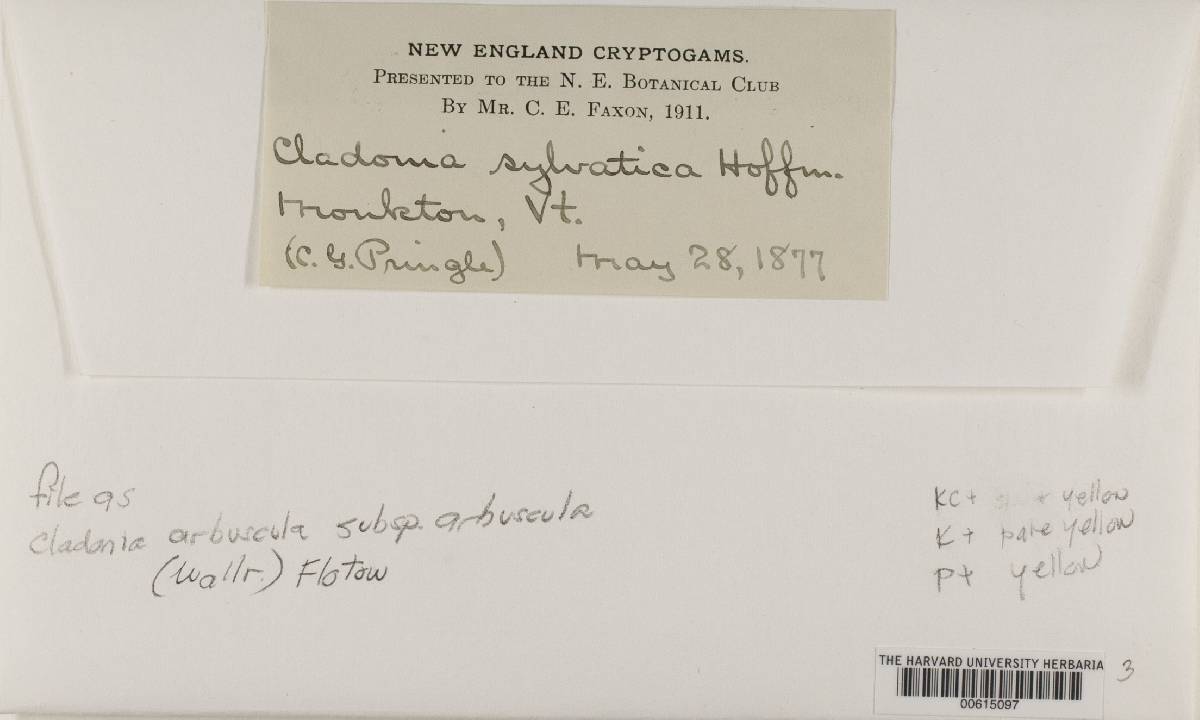 NEW ENGLAND CRYPTOGAMS.
PRESENTED TO THE N. E. BOTANICAL CLUB
BY MR. C. E. FAXON, 1911.
Cladonia sylvatica Hoffm.
Monkton, Vt.
(C. G. Pringle) May 28, 1877
file as
Cladonia arbuscula subsp. arbuscula
(Wallr.) Flotow
KC+ yellow
K+ pale yellow
P+ yellow
THE HARVARD UNIVERSITY HERBARIA
3
00615097